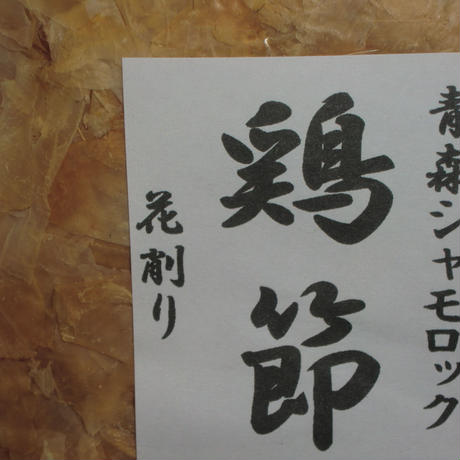 青森シャモロック
鶏節
花削り